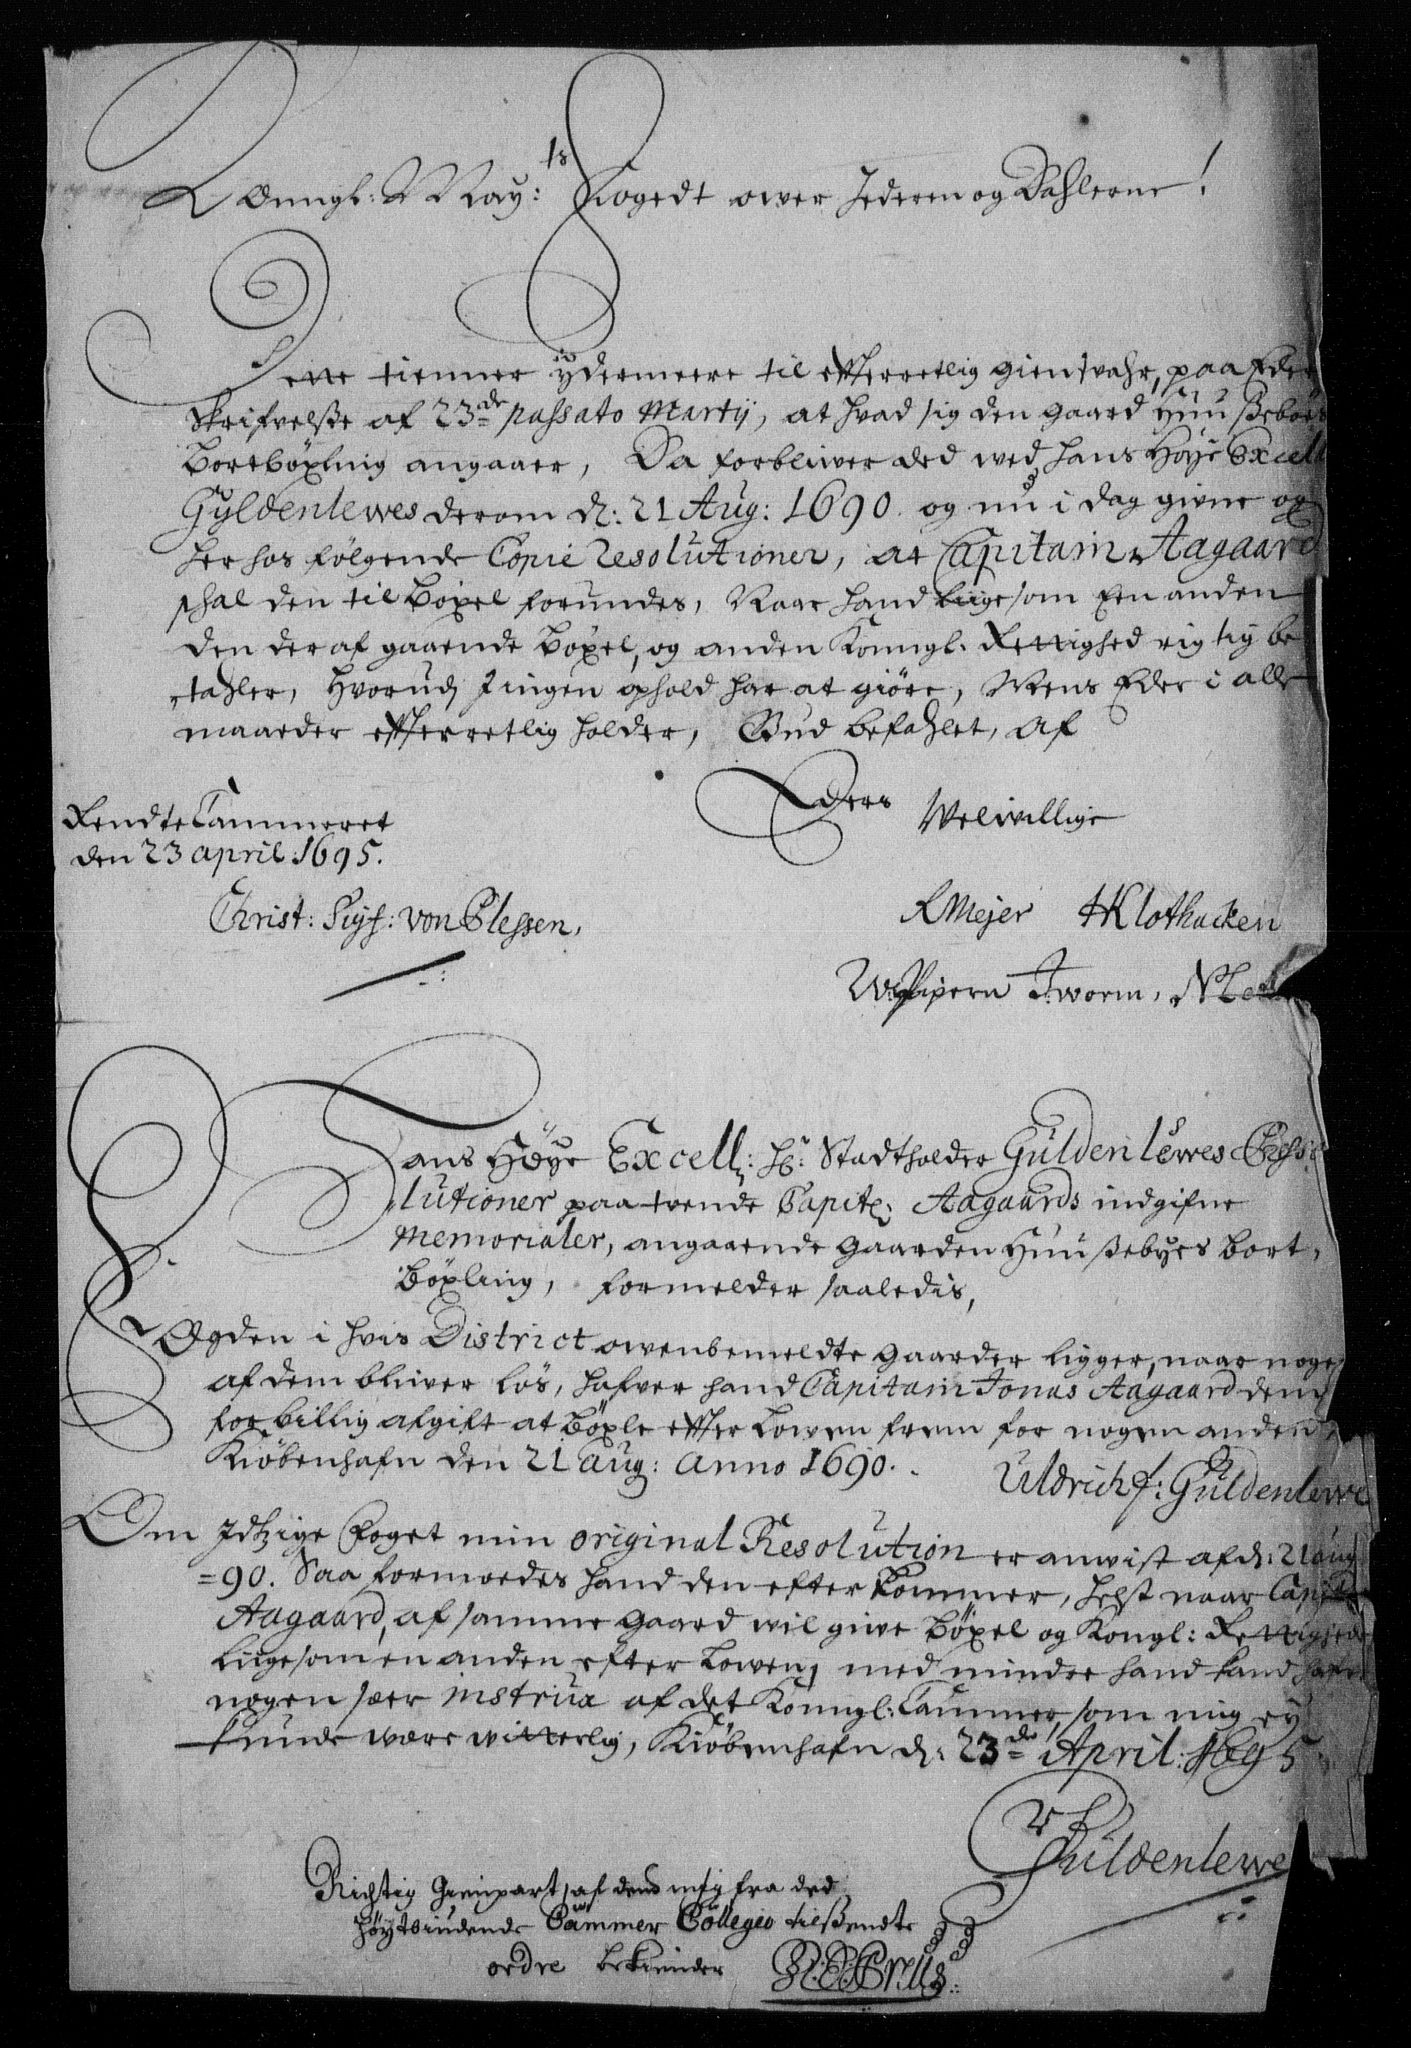 Konngl: May: ts Fogedt over Jederen og Dahlerne!
Dette tienner ÿdermeere til effterretlig giensvahr, paa Eders
Skrifvelsse af 23de passato Martij, at hvad sig den gaard Huusseboes
Bortböxling angaaer, Da forbliver ded wed hans Höÿe Excell
Gyldenlewes derom d: 21 Aug: 1690. og nu i dag givne og
her hos fölgende Copie resolutioner, at Capitain Aagaard
schal den til Böxel forundes, Naar hand liige som Een anden
den der af gaaende Böxel, og anden Konngl. Rettighed rigtig be
tahler, Hvorudj Jngen ophold har at giöre, Mens Eder i alle
maader effterretlig holder, Gud befahlet, af
Eders
Welwillige
Rendte Cammeret
den 23 april: 1695.
Christ: Sigf: von Plessen,
R Mejer H Klothacken
W: Pipern J: worm, N
Hans Höÿe Excell: Hr: Stadtholder Güldenlewes Reso
lutioner paa tvende Capit: Aagaards indgifne
Memorialer, angaaende gaarden Huussebyes bort,
Böxling, formelder saaledis,
Fogden i hvis District owenbemeldte gaarder ligger, naar nogen
af dem bliver lös, hafver hand Capitain Jonas Aagaard dem
for billig afgift at böxle effter Lowen frem for nogen anden,
Kiöbenhafn den 21 Aug: Anno 1690. Uldrich f: Güldenlewe
Om Jdtzige Foget min original Resolution er anwist af d: 21 aug
=90. Saa formoedes hand den efter kommer, helst naar Capit
Aagaard, af samme gaard wil give Böxel og Kongl: Rettighede
liige som en anden efter Lowen, med mindre hand kand hafve
nogen sær instrux af det Konngl: Cammer, som mig eÿ
kunde være witterlig, Kiöbenhafn d: 23de April: 1695
U F Güldenlewe
Rigtig Gienpart, af dend mig fra ded
Höÿtbiudende Cammer Collegio tilsendte
ordre bekiender